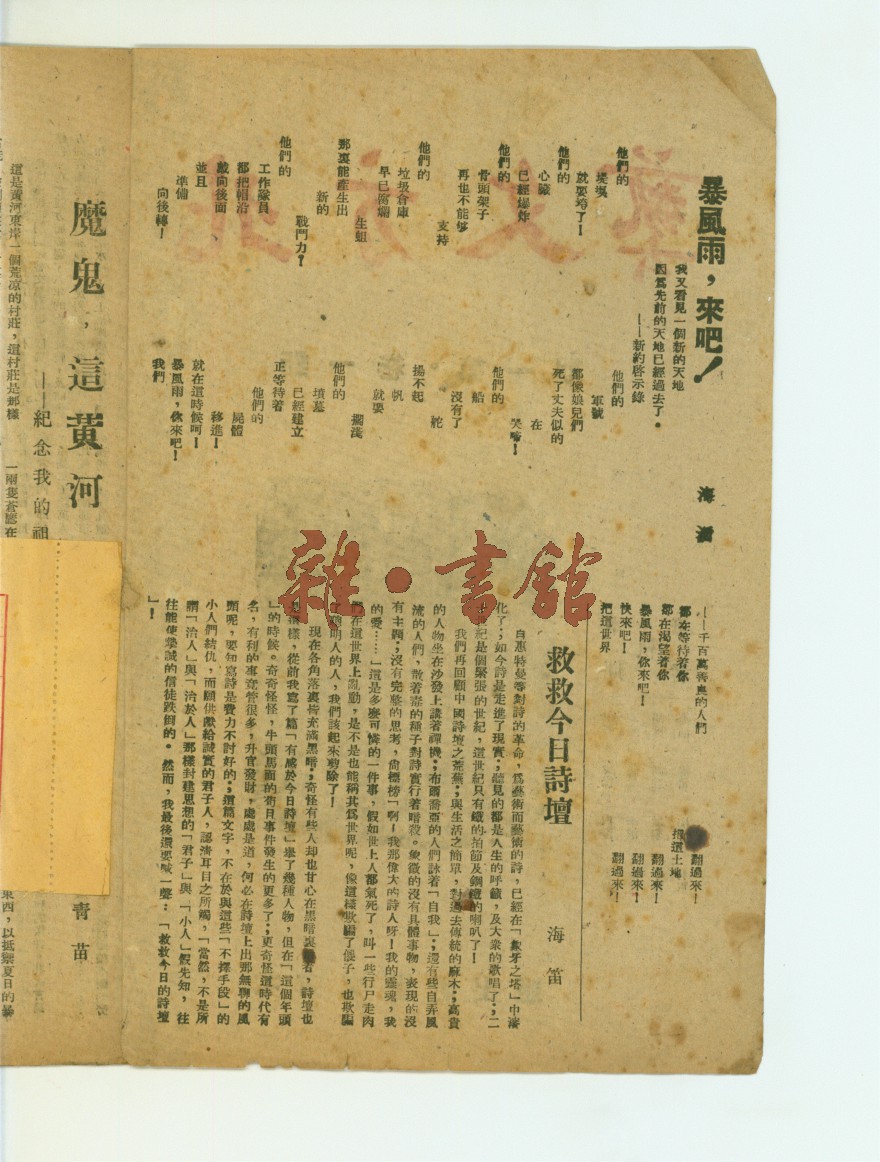 暴風雨，來吧！
我又看見一個新的天地
因爲先前的天地已經過去了。
——新約啓示錄
海
他們的
堤壩
就要垮了！
他們的
心臟
已經爆炸
他們的
骨頭架子
再也不能够
支持
他們的
垃圾倉庫
早已腐爛
生蛆
那裏能產生出
新的
戰鬥力？
他們的
工作隊員
都把帽沿
戴向後面
並且
準備
向後轉！
他們的
軍號
都像娘兒們
死了丈夫似的
在
哭嚎！
他們的
船
沒有了
舵
揚不起
帆
就要
擱淺
他們的
墳墓
已經建立
正等待着
他們的
屍體
移進！
就在這時候呵！
暴風雨，你來吧！
我們
——千百萬善良的人們
都在等待着你
都在渴望着你
暴風雨，你來吧！
快來吧！
把這世界
翻過來！
把這土地
翻過來！
翻過來！
翻過來！
救救今日詩壇
海笛
自惠特曼等對詩的革命，爲藝術而藝術的詩，已經在「象牙之塔」中溶
化了；如今詩是走進了現實；聽見的都是人生的呼籲，及大衆的歌唱了；二
十世紀是個緊張的世紀，這世紀只有鐵的拍節及鋼鐵的喇叭了！
我們再回顧中國詩壇之荒蕪；與生活之簡單，對過去傳統的麻木；高貴
的人物坐在沙發上講着禪機；布爾喬亞的人們詠着「自我」；還有些自弄風
流的人們，散着毒的種子對詩實行着暗殺。象徵的沒有具體事物，表現的沒
有主題；沒有完整的思考，尙標榜「啊！我那偉大的詩人呀！我的靈魂，我
的愛……」這是多麽可憐的一件事，假如世上人都氣死了，叫一些行尸走肉
們在這世界上亂動，是不是也能稱其爲世界呢，像這樣欺騙了傻子，也欺騙
了聰明人的人，我們該起來剪除了！
現在各角落裏皆充滿黑暗；奇怪有些人却也甘心在黑暗裏　着，詩壇也
是這樣，從前我寫了篇「有感於今日詩壇」舉了幾種人物，但在「這個年頭
」的時候。奇奇怪怪，牛頭馬面的茍且事件發生的更多了；更奇怪這時代有
名，有利的事竟管很多，升官發財，處處是道，何必在詩壇上出那無聊的風
頭呢，要知寫詩是費力不討好的；這篇文字，不在於與這些「不擇手段」的
小人們結仇，而願供獻給誠實的君子人，認淸耳目之所觸，「當然，不是所
謂「治人」與「治於人」那樣封建思想的「君子」與「小人」假先知，往
往能使摯誠的信徒跌倒的。然而，我最後還要喊一聲：「救救今日的詩壇
」！
魔鬼，這黃河
——紀念我的祖
青苗
這是黃河東岸一個荒凉的村莊，這村莊是那樣
一兩隻蒼鷹在
東西，以抵禦夏日的暴
雜·書館